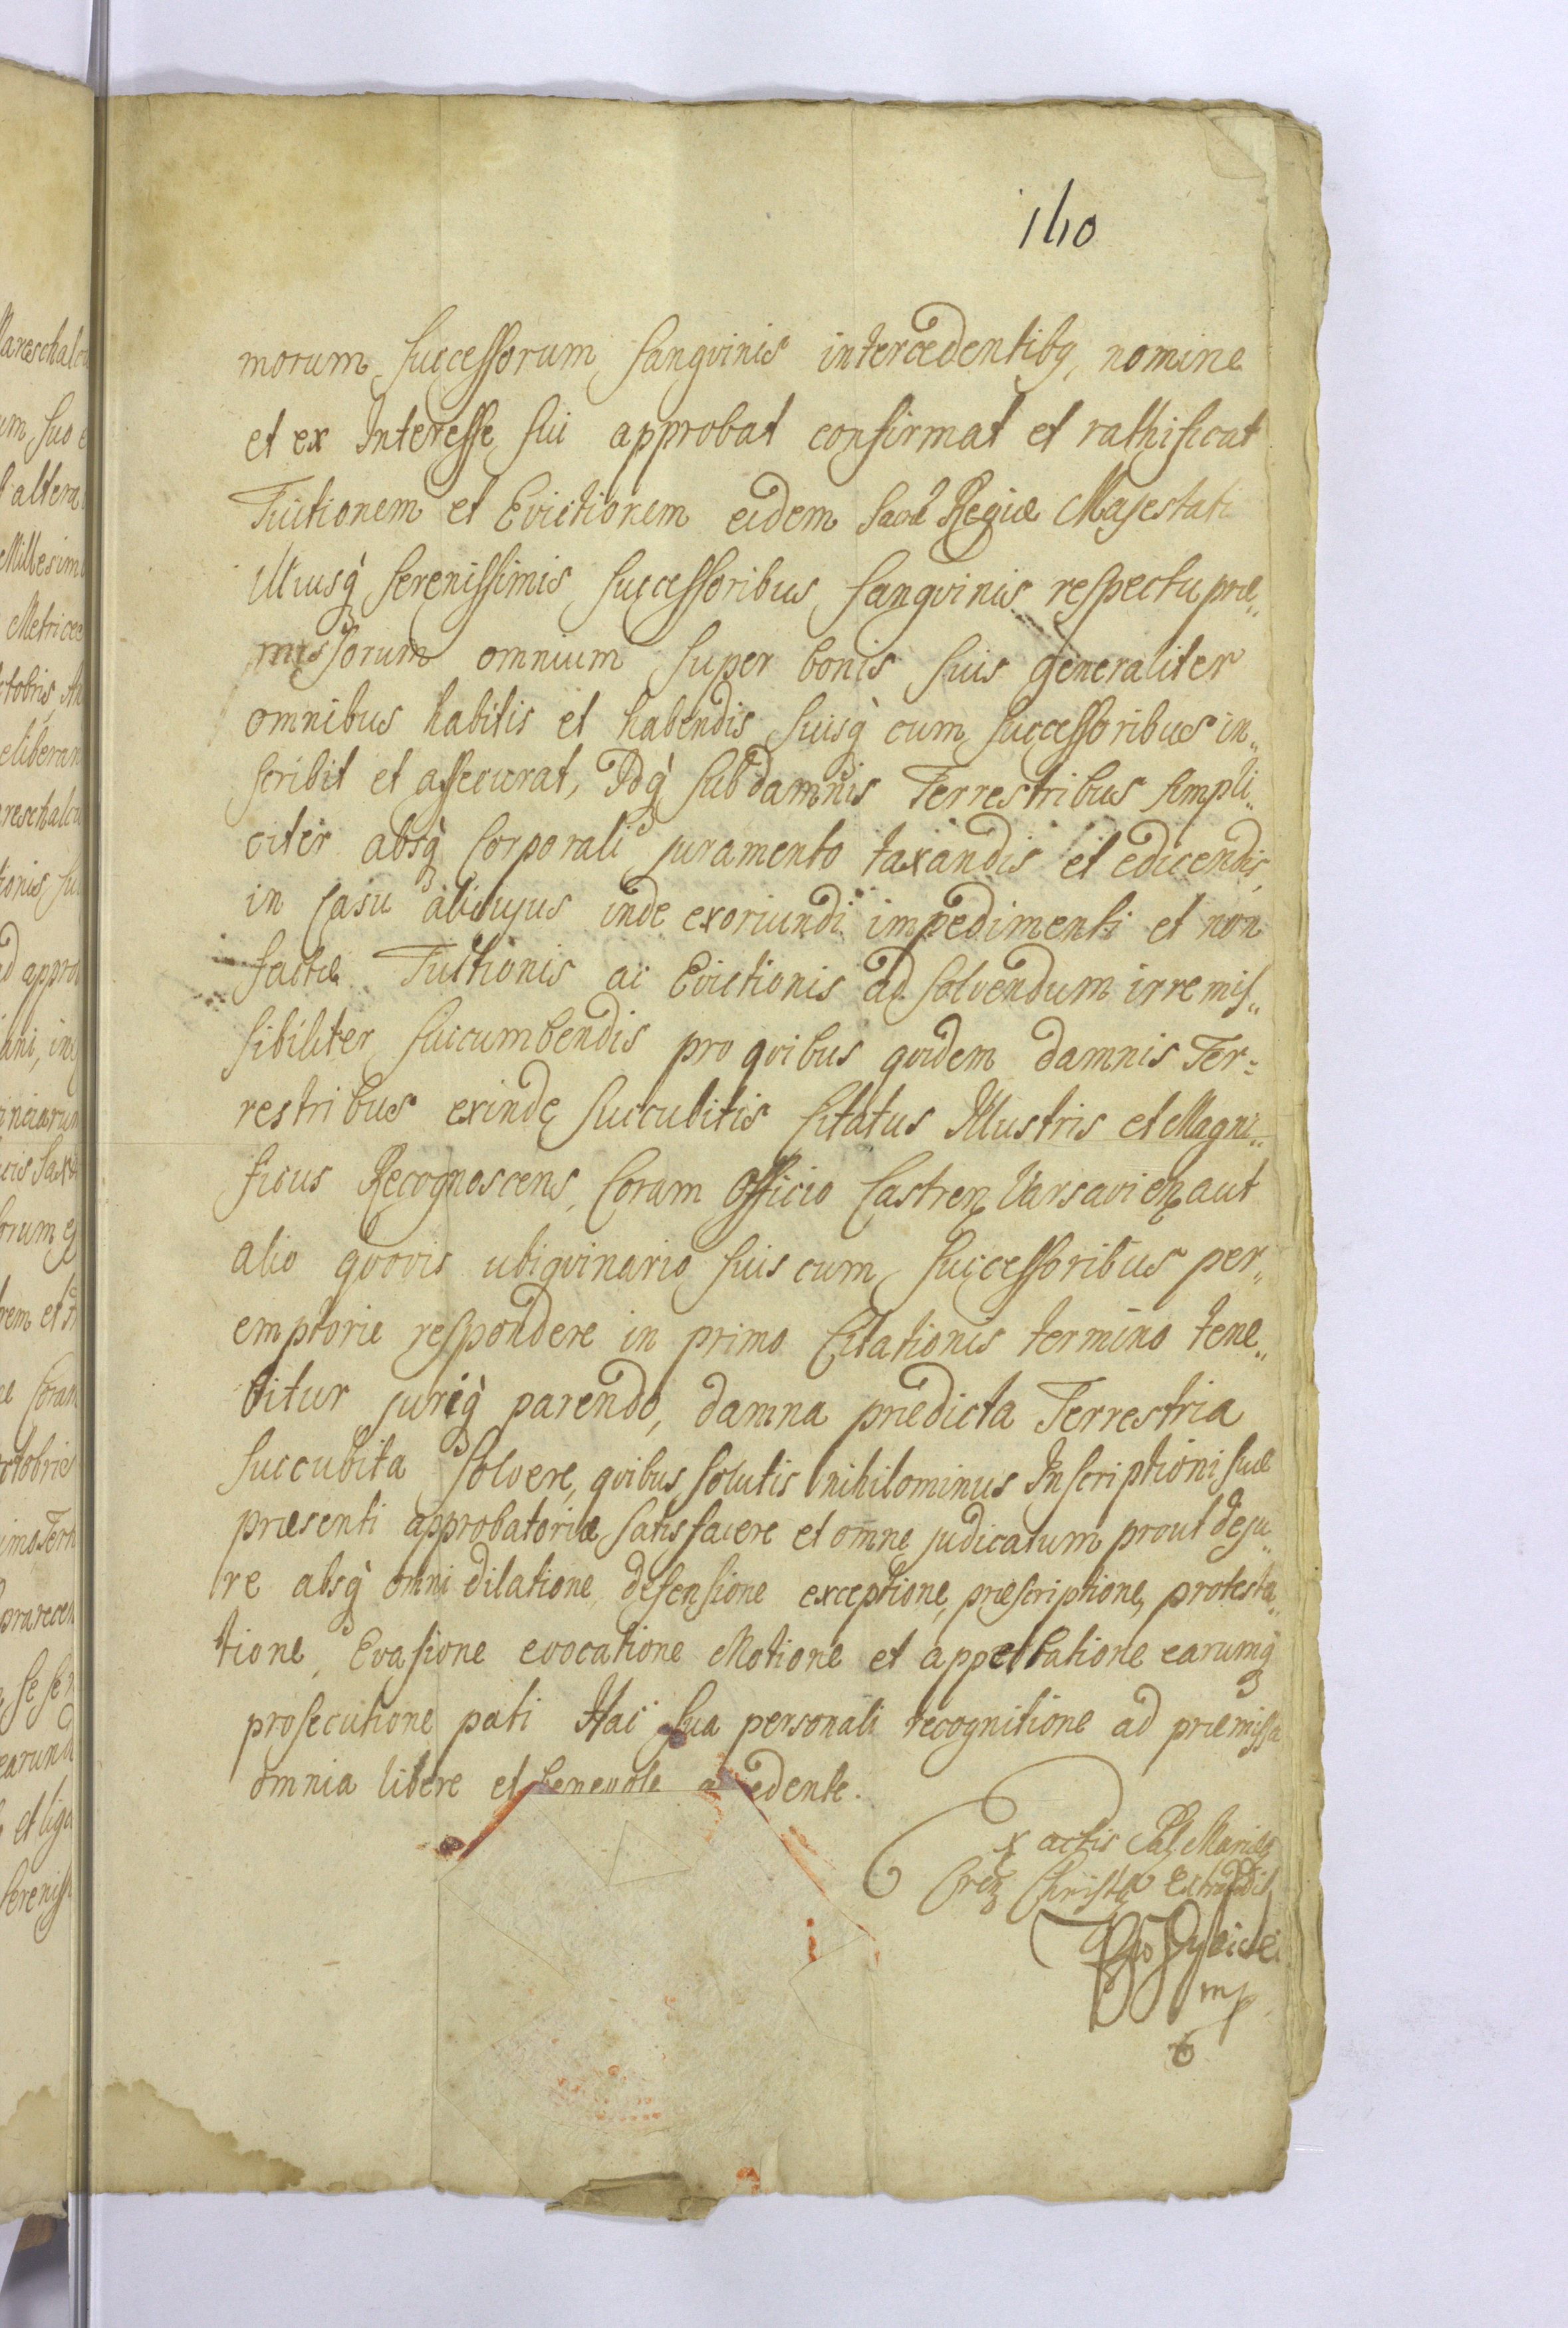 140
morum Successorum Sangvinis intercedentibq, nomine
et ex Interesse sui approbat confirmat et rathificat
Tuitionem et Evictionem eidem Sacræ Regiæ Majestati
Illiusq̀ Serenissimis Successoribus Sangvinis respectu præ„
missorum omnium super bonis suis generaliter
omnibus habitis et habendis suisq̀ cum Successoribus in„
scribit et assecurat, Idq̀ sub damnis Terrestribus simpli„
citer absq̀ Corporali juramento taxandis et edicendis,
in Casu alicujus inde exoriundi impedimenti et non
factæ Tuitionis ac Evictionis ad solvendum irremis„
sibiliter succumbendis pro qvibus qvidem damnis Ter=
restribus exinde succubitis Citatus Illustris et Magni„
ficus Recognoscens, Coram Officio Castren Varsavien aut
alio qvovis ubiqvinario suis cum Successoribus per„
emptorie respondere in primo Citationis termino tene„
bitur juriq̀ parendo, damna prædicta Terrestria
succubita solvere, qvibus solutis nihilominus Inscriptioni suæ
præsenti approbatoriæ satisfacere et omne judicatum prout de ju„
re absq̀ omni dilatione, defensione exceptione, præscriptione, protesta„
tione, Evasione evocatione Motione et appellatione earumq̀
prosecutione pati Hac sua personali recognitione ad præmissa
omnia libere et benevole accedente.
Ex actis
mp